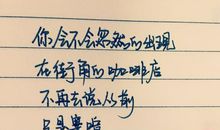 你会不会忽然的出现
在街角的咖啡店
不再去说从前
只是寒暄